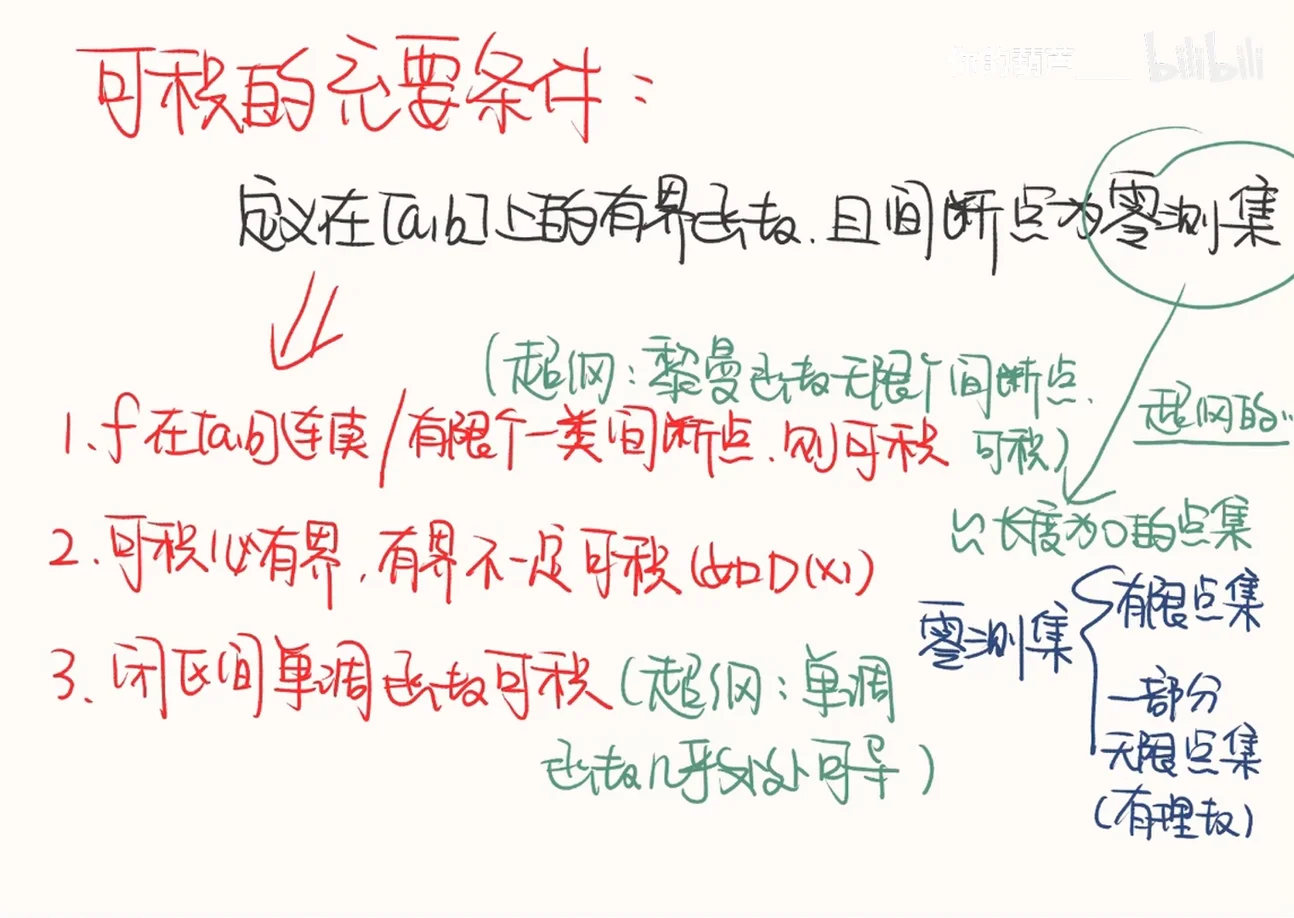 bilibili
可积的充要条件：
定义在[a,b]上的有界函数.且间断点为零测集
(超纲：黎曼函数无限个间断点.
可积)
超纲的..
1.f在[a,b]连续/有限个一类间断点.则可积
以长度为0的点集
2.可积必有界.有界不一定可积(如D(x))
零测集
有限点集
一部分
无限点集
(有理数)
3.闭区间单调函数可积(超纲：单调
函数几乎处处可导)